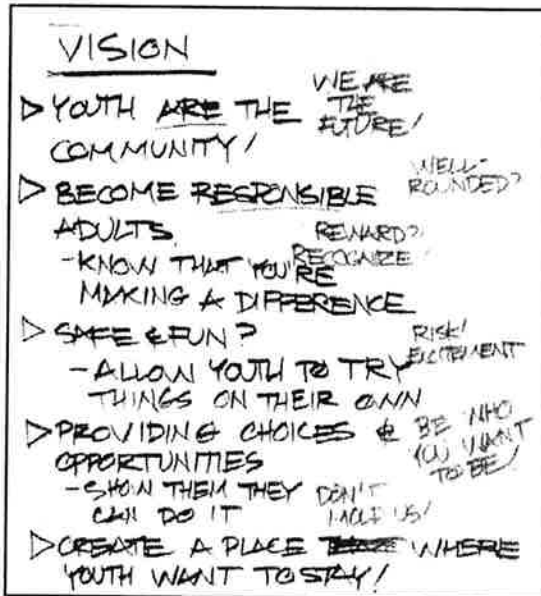 VISION
WE ARE
THE
FUTURE!
▷ YOUTH ARE THE
COMMUNITY!
WELL-
ROUNDED?
▷ BECOME RESPONSIBLE
ADULTS
REWARD?
RECOGNIZE!
- KNOW THAT YOU'RE
MAKING A DIFFERENCE
▷ SAFE & FUN?
RISK!
EXCITEMENT
- ALLOW YOUTH TO TRY
THINGS ON THEIR OWN
▷ PROVIDING CHOICES &
OPPORTUNITIES
BE WHO
YOU WANT
TO BE!
- SHOW THEM THEY
CAN DO IT
DON'T
MOLD US!
▷ CREATE A PLACE WHERE
YOUTH WANT TO STAY!